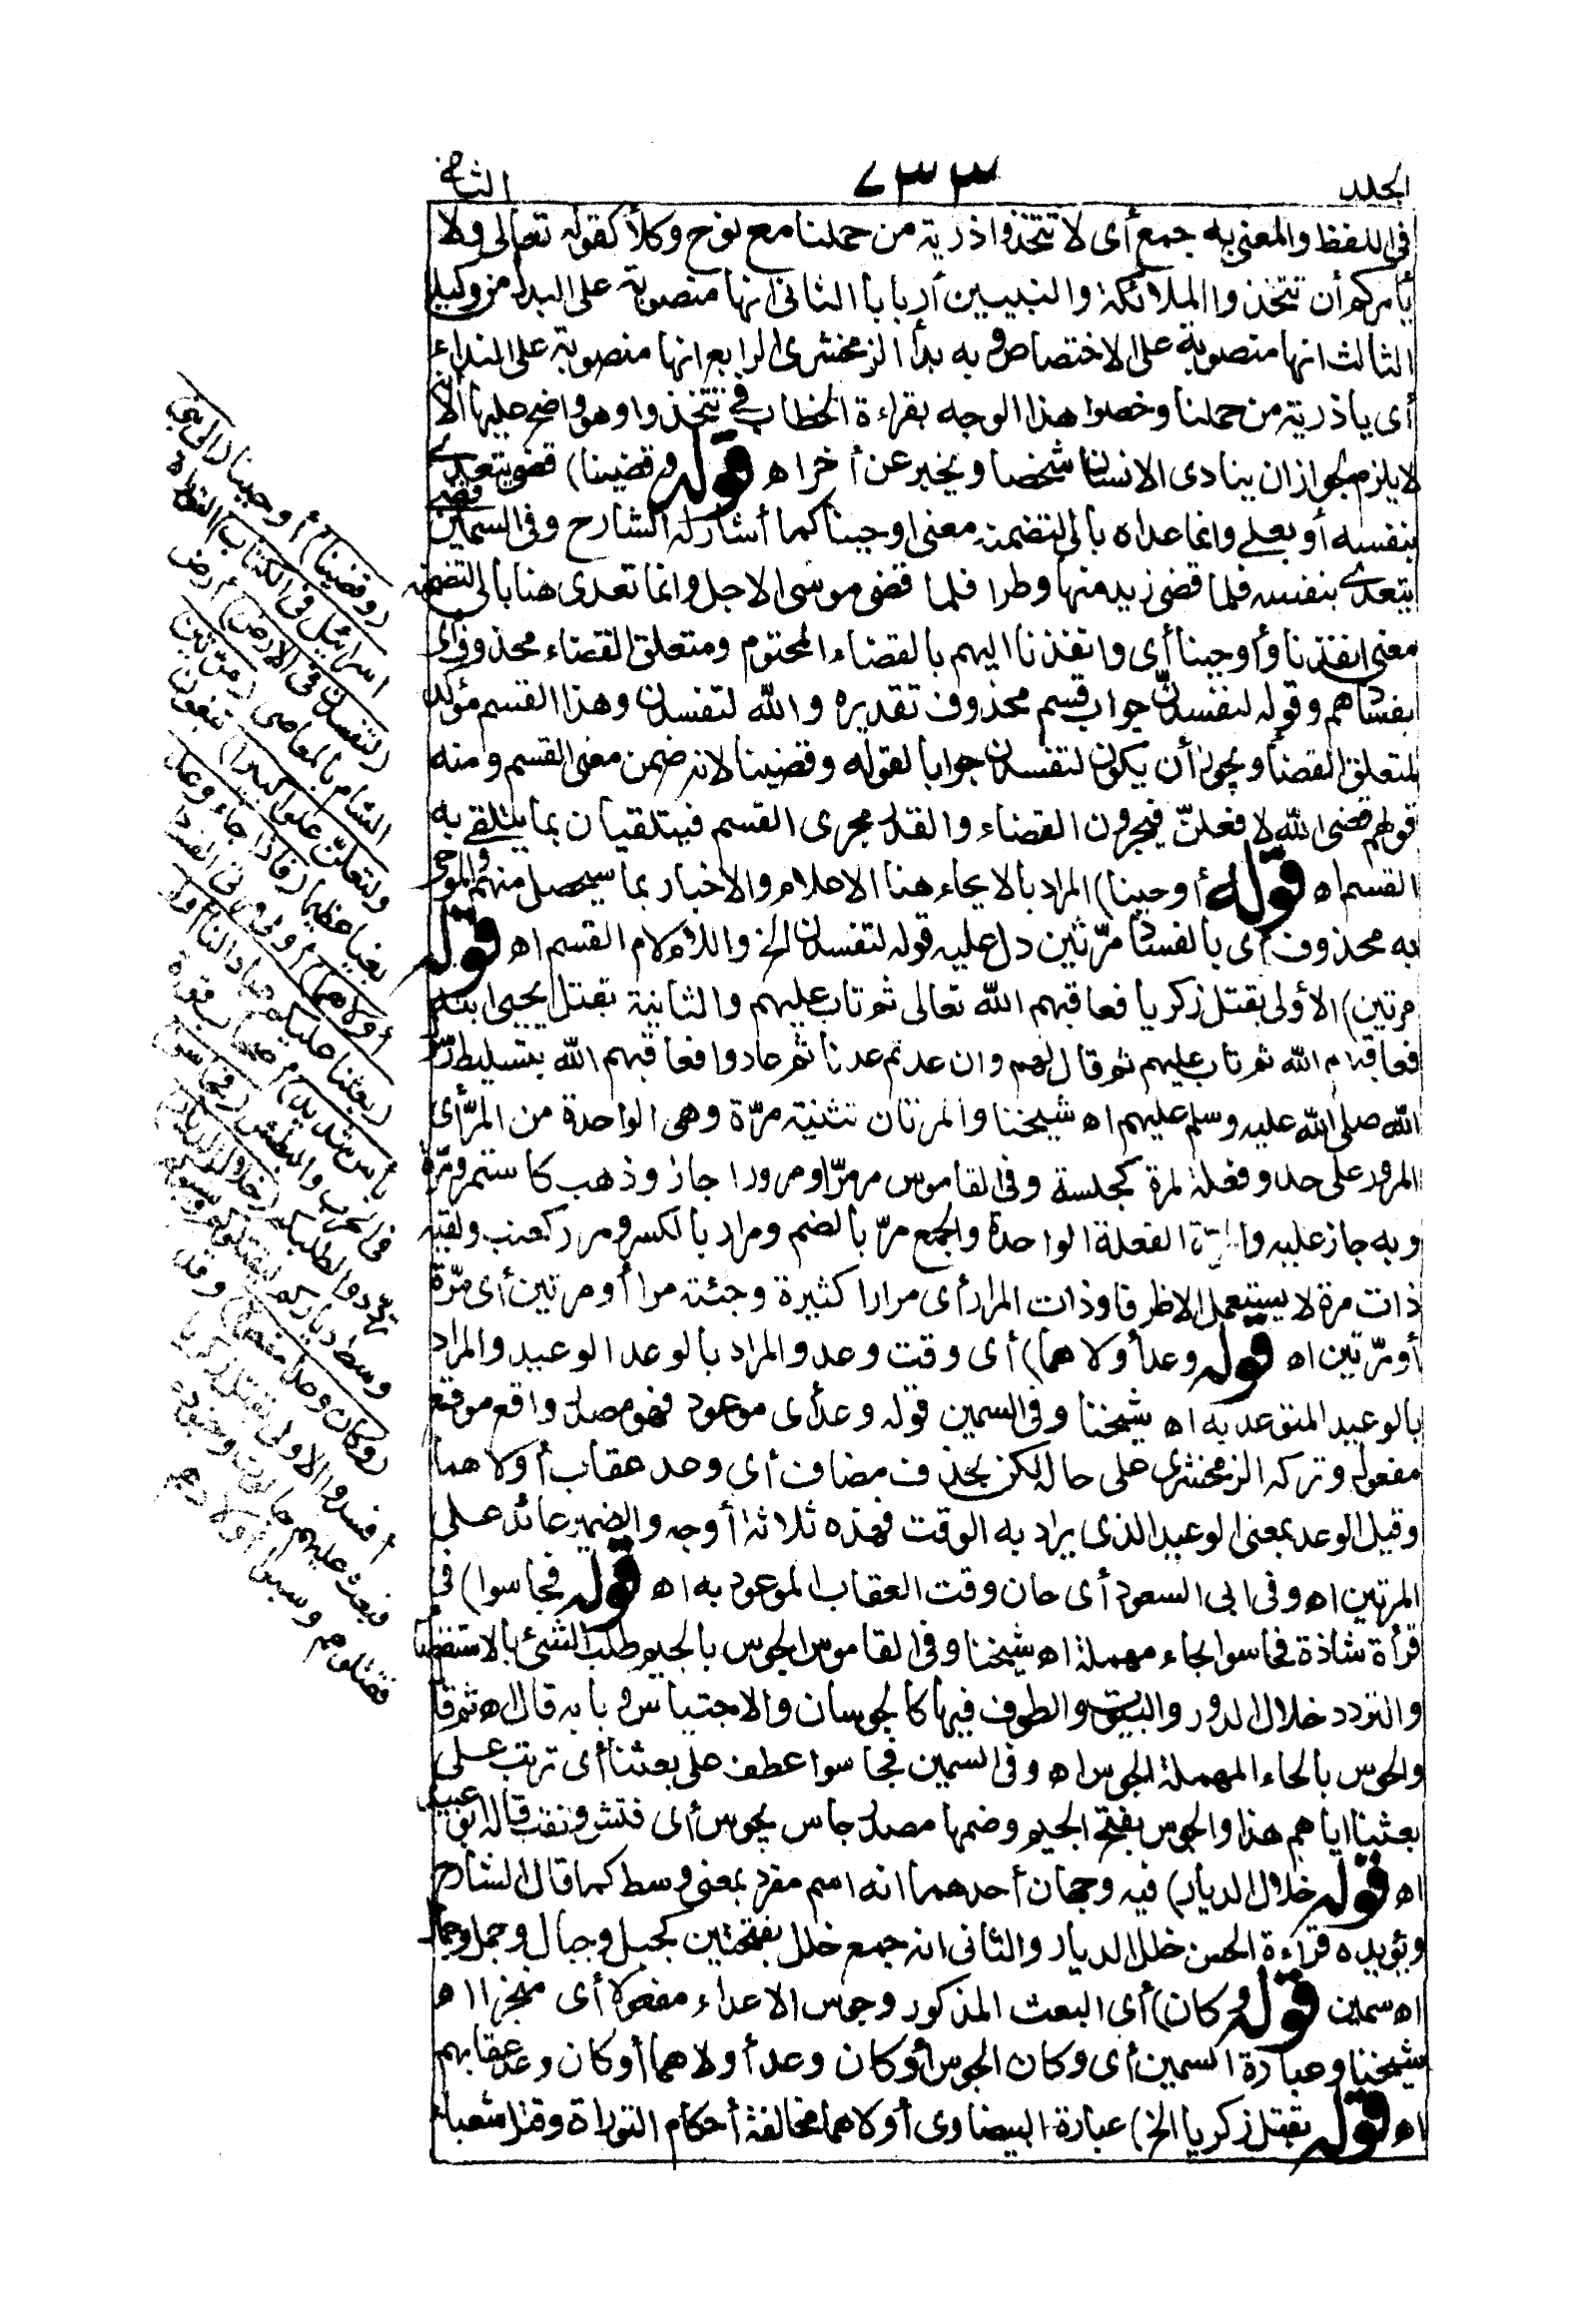 الجلد ٧٣٣ الثانى
فى اللفظ والمعنى به جمع أى لا تتخذوا ذرية من حملنا مع نوح وكلأ كقوله تعالى ولا
يأمركم أن تتخذوا الملائكة والنبيين أربابا الثانى انها منصوبة على البدل من وكيلا
الثالث انها منصوبة على الاختصاص وبه بدأ الزمخشرى الرابع انها منصوبة على النداء
أى يا ذرية من حملنا وخصوا هذا الوجه بقراءة الخطاب فى تتخذوا وهو واضح عليها الا أنه
لا يلزم لجواز ان ينادى الانسان شخصا ويخبر عن أخر اه قوله وقضينا) قضى يتعدى
بنفسه أو بعلى وانما عداه بالى لتضمنه معنى اوحينا كما أشار له الشارح وفى السمين قضى
يتعدى بنفسه فلما قضى زيد منها وطرا فلما قضى موسى الاجل وانما تعدى هنا بالى لتضمنه
معنى انفذنا وأوحينا أى وانفذنا اليهم بالقضاء المحتوم ومتعلق القضاء محذوف أى
بفسادهم وقوله لتفسدن جواب قسم محذوف تقديره والله لتفسدن وهذا القسم مؤكد
لمتعلق القضاء ويجوز أن يكون لتفسدن جوابا لقوله وقضينا لانه ضمن معنى القسم ومنه
قولهم قضى الله لافعلنّ فيجرون القضاء والقدر مجرى القسم فيتلقيان بما يتلقى به
القسم اه قوله أوحينا) المراد بالايحاء هنا الاعلام والاخبار بما سيحصل منهم والموحى
به محذوف أى بالفساد مرّتين دل عليه قوله لتفسدن الخ واللام لام القسم اه قوله
مرتين) الأولى بقتل زكريا فعاقبهم الله تعالى ثم تاب عليهم والثانية بقتل يحيى ابنه
فعاقبهم الله ثم تاب عليهم ثم قال لهم وان عدتم عدنا ثم عادوا فعاقبهم الله بتسليط رسول
الله صلى الله عليه وسلم عليهم اه شيخنا والمرتان تثنية مرّة وهى الواحدة من المرّ أى
المرور على حد وفعلة لمرة كجلسة وفى القاموس مر مرّا ومرورا جاز وذهب كاستمر ومرّه
وبه جاز عليه والمرّة الفعلة الواحدة والجمع مرّ بالضم ومرار بالكسر ومرر كعنب ولقيه
ذات مرة لا يستعمل الا ظرفا وذات المرار أى مرارا كثيرة وجئته مرا أو مرتين أى مرّة
أو مرّتين اه قوله وعد أولاهما) أى وقت وعد والمراد بالوعد الوعيد والمراد
بالوعيد المتوعد به اه شيخنا وفى السمين قوله وعد أى موعود فهو مصدر واقع موقع
مفعول وتركه الزمخشرى على حاله لكن بحذف مضاف أى وعد عقاب أولاهما
وقيل الوعد بمعنى الوعيد الذى يراد به الوقت فهذه ثلاثة أوجه والضمير عائد على
المرتين اه وفى ابى السعود أى حان وقت العقاب الموعود به اه قوله فجاسوا) فى
قرأة شاذة فحاسوا بحاء مهملة اه شيخنا وفى القاموس الجوس بالجيم طلب الشئ بالاستقصاء
والتردد خلال الدور والبيوت والطوف فيها كالجوسان والاجتياس وبابه قال اه ثم قال
والحوس بالحاء المهملة الجوس اه وفى السمين فجاسوا عطف على بعثنا أى ترتب على
بعثنا اياهم هذا والجوس بفتح الجيم وضمها مصدر جاس يجوس أى فتش ونقب قاله ابو عبيد
اه قوله خلال الديار) فيه وجهان أحدهما انه اسم مفرد بمعنى وسط كما قال الشارح
ويؤيده قراءة الحسن خلل الديار والثانى انه جمع خلل بفتحتين كجبل وجبال وجمل وجمال
اه سمين قوله وكان) أى البعث المذكور وجوس الاعداء مفعولا أى منجزا اه
شيخنا وعبارة السمين أى وكان الجوس أو كان وعد أولاهما أو كان وعد عقابهم
اه قوله بقتل زكريا الخ) عبارة البيضاوى أولاهما مخالفة أحكام التوراة وقتل شعياء
(وقضينا) أوحينا (الى بنى
اسرائيل فى الكتاب) التوراة
(لتفسدن فى الارض) أرض
الشام بالمعاصى (مرتين
ولتعلنّ علوا كبيرا) تبغون
بغيا عظيما (فاذا جاء وعد
أولاهما) أولى مرتى الفساد
(بعثنا عليكم عبادا لنا أولى
بأس شديد) أصحاب قوة
فى الحرب والبطش (فجاسوا)
تردّدوا لطلبكم (خلال الديار)
وسط دياركم ليقتلوكم ويسبوكم
(وكان وعدا مفعولا) وقد
أفسدوا الاولى بقتل زكريا
فبعث عليهم جالوت وجنوده
فقتلوهم وسبوا أولادهم